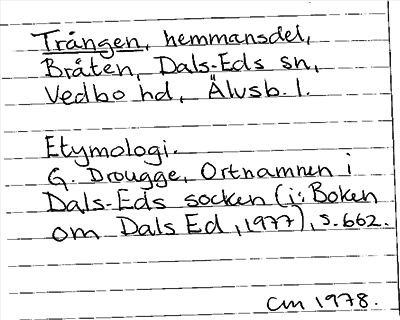 Trången, hemmansdel,
Bråten, Dals-Eds sn,
Vedbo hd, Älvsb. l.
Etymologi.
G. Drougge, Ortnamnen i
Dals-Eds socken (i: Boken
om Dals Ed, 1977), s. 662.
CM 1978.